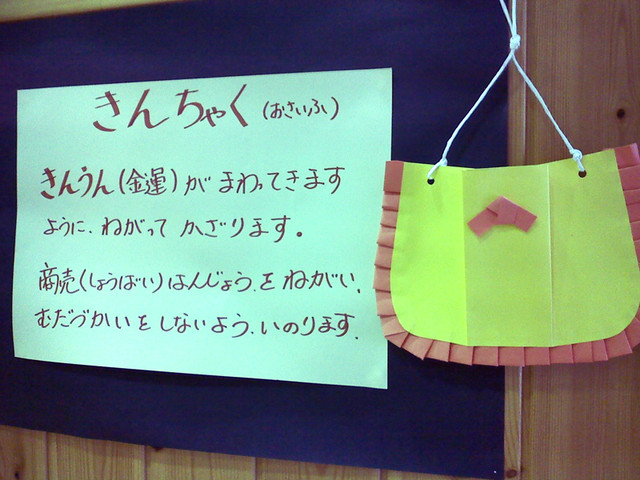 きんちゃく(おさいふ)
きんうん(金運)がまわってきます
ように、ねがってかざります。
商売(しょうばい)はんじょうをねがい、
むだづかいをしないよう、いのります。